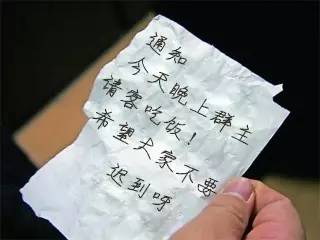 通知
今天晚上群主
请客吃饭！
希望大家不要
迟到呀